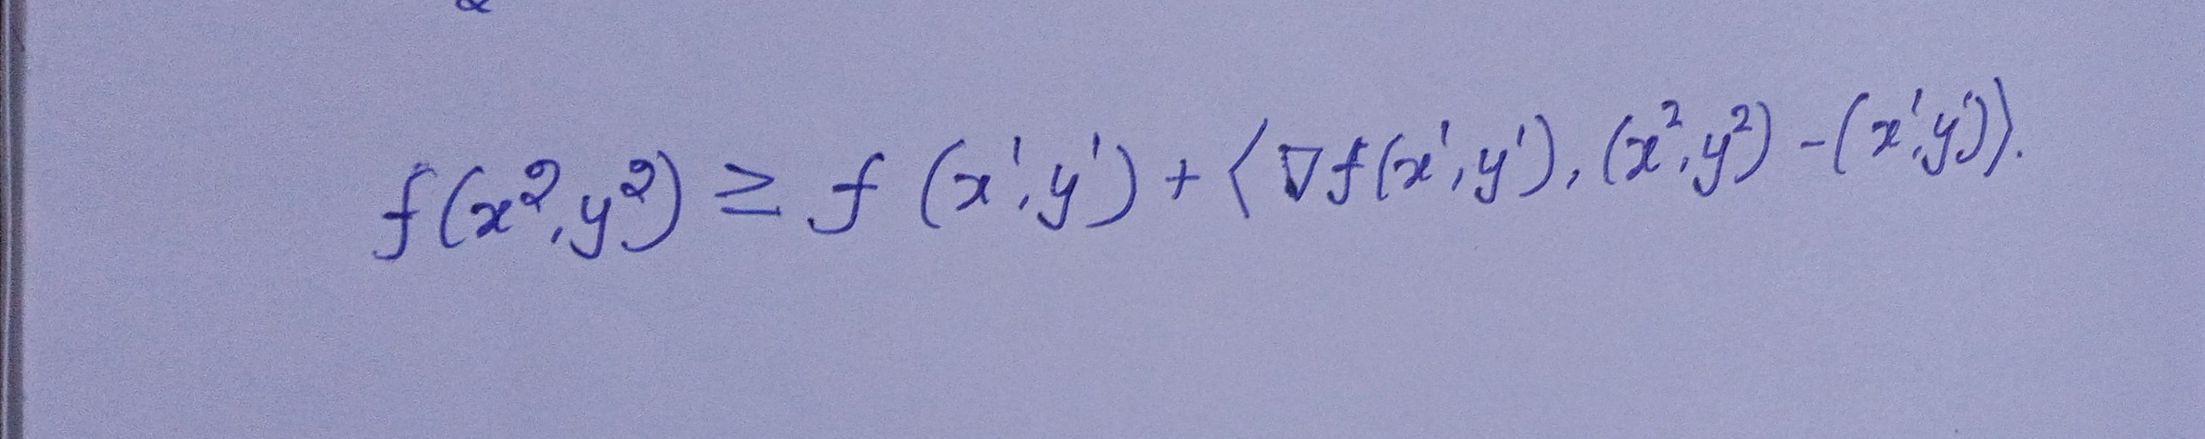 f(x², y²) ≥ f(x¹, y¹) + ⟨∇f(x¹, y¹), (x², y²) − (x¹, y¹)⟩.